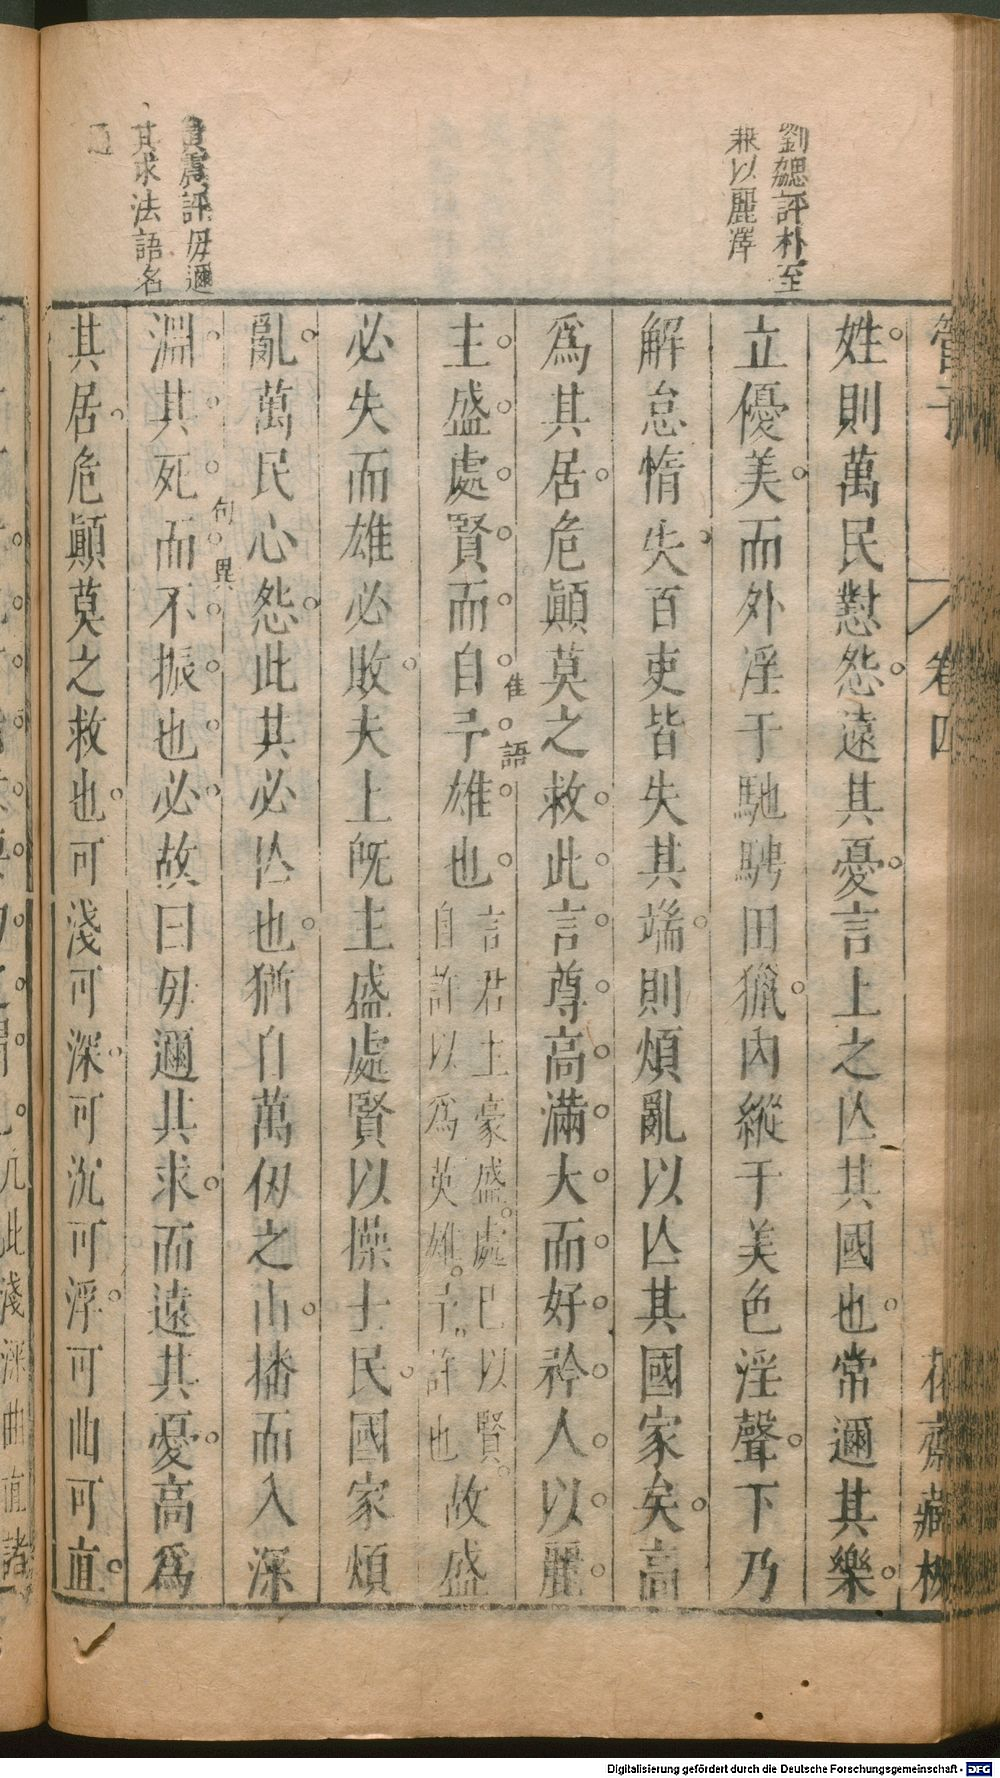 管子 卷四 花齋藏板
劉勰評朴至
兼以麗澤
姓則萬民懟怨遠其憂言上之亾其國也常邇其樂
立優美而外淫于馳騁田獵内縱于美色淫聲下乃
解怠惰失百吏皆失其端則煩亂以亾其國家矣高
爲其居危顚莫之救此言尊高滿大而好矜人以麗
佳語
主盛處賢而自予雄也言君主豪盛處已以賢自許以爲英雄予許也故盛
必失而雄必敗夫上旣主盛處賢以操士民國家煩
亂萬民心怨此其必亾也猶自萬仞之山播而入深
句異
淵其死而不振也必故曰毋邇其求而遠其憂高爲
其居危顚莫之救也可淺可深可沉可浮可曲可直
評毋邇
其求法語名
此淺深曲直諸
Digitalisierung gefördert durch die Deutsche Forschungsgemeinschaft - DFG